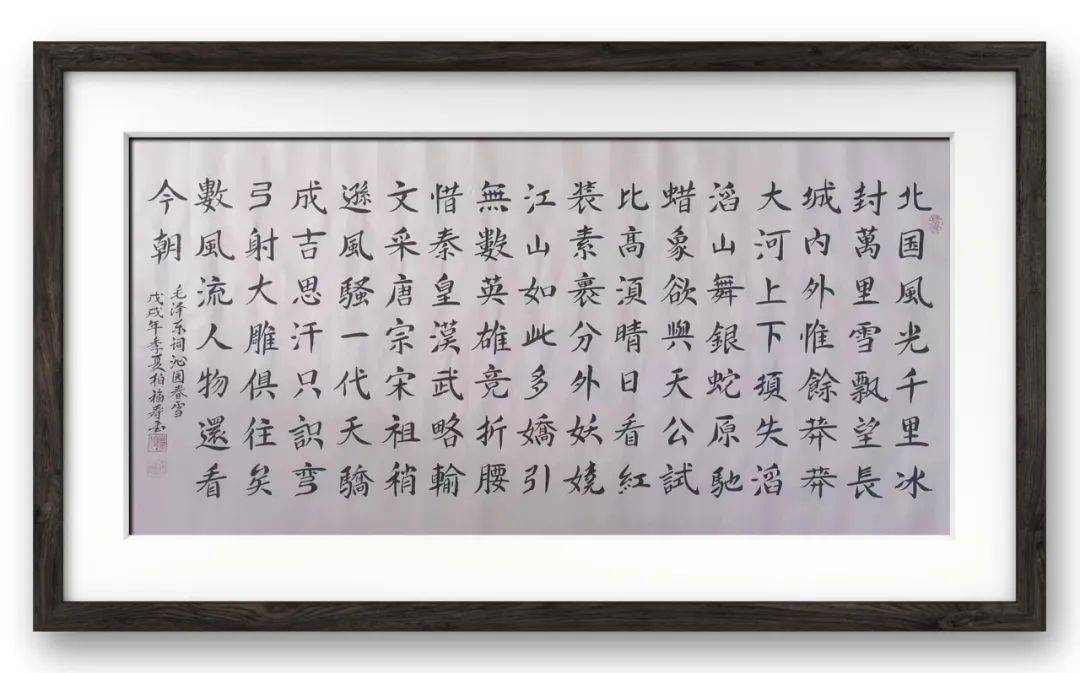 北国風光千里冰
封萬里雪飄望長
城内外惟餘莽莽
大河上下頓失滔
滔山舞銀蛇原馳
蜡象欲與天公試
比高湏晴日看紅
装素裹分外妖嬈
江山如此多嬌引
無數英雄竞折腰
惜秦皇漢武略輸
文采唐宗宋祖稍
遜風騷一代天驕
成吉思汗只識彎
弓射大雕俱往矣
數風流人物還看
今朝
毛泽东词沁园春雪
戊戌年季夏柏福寿书